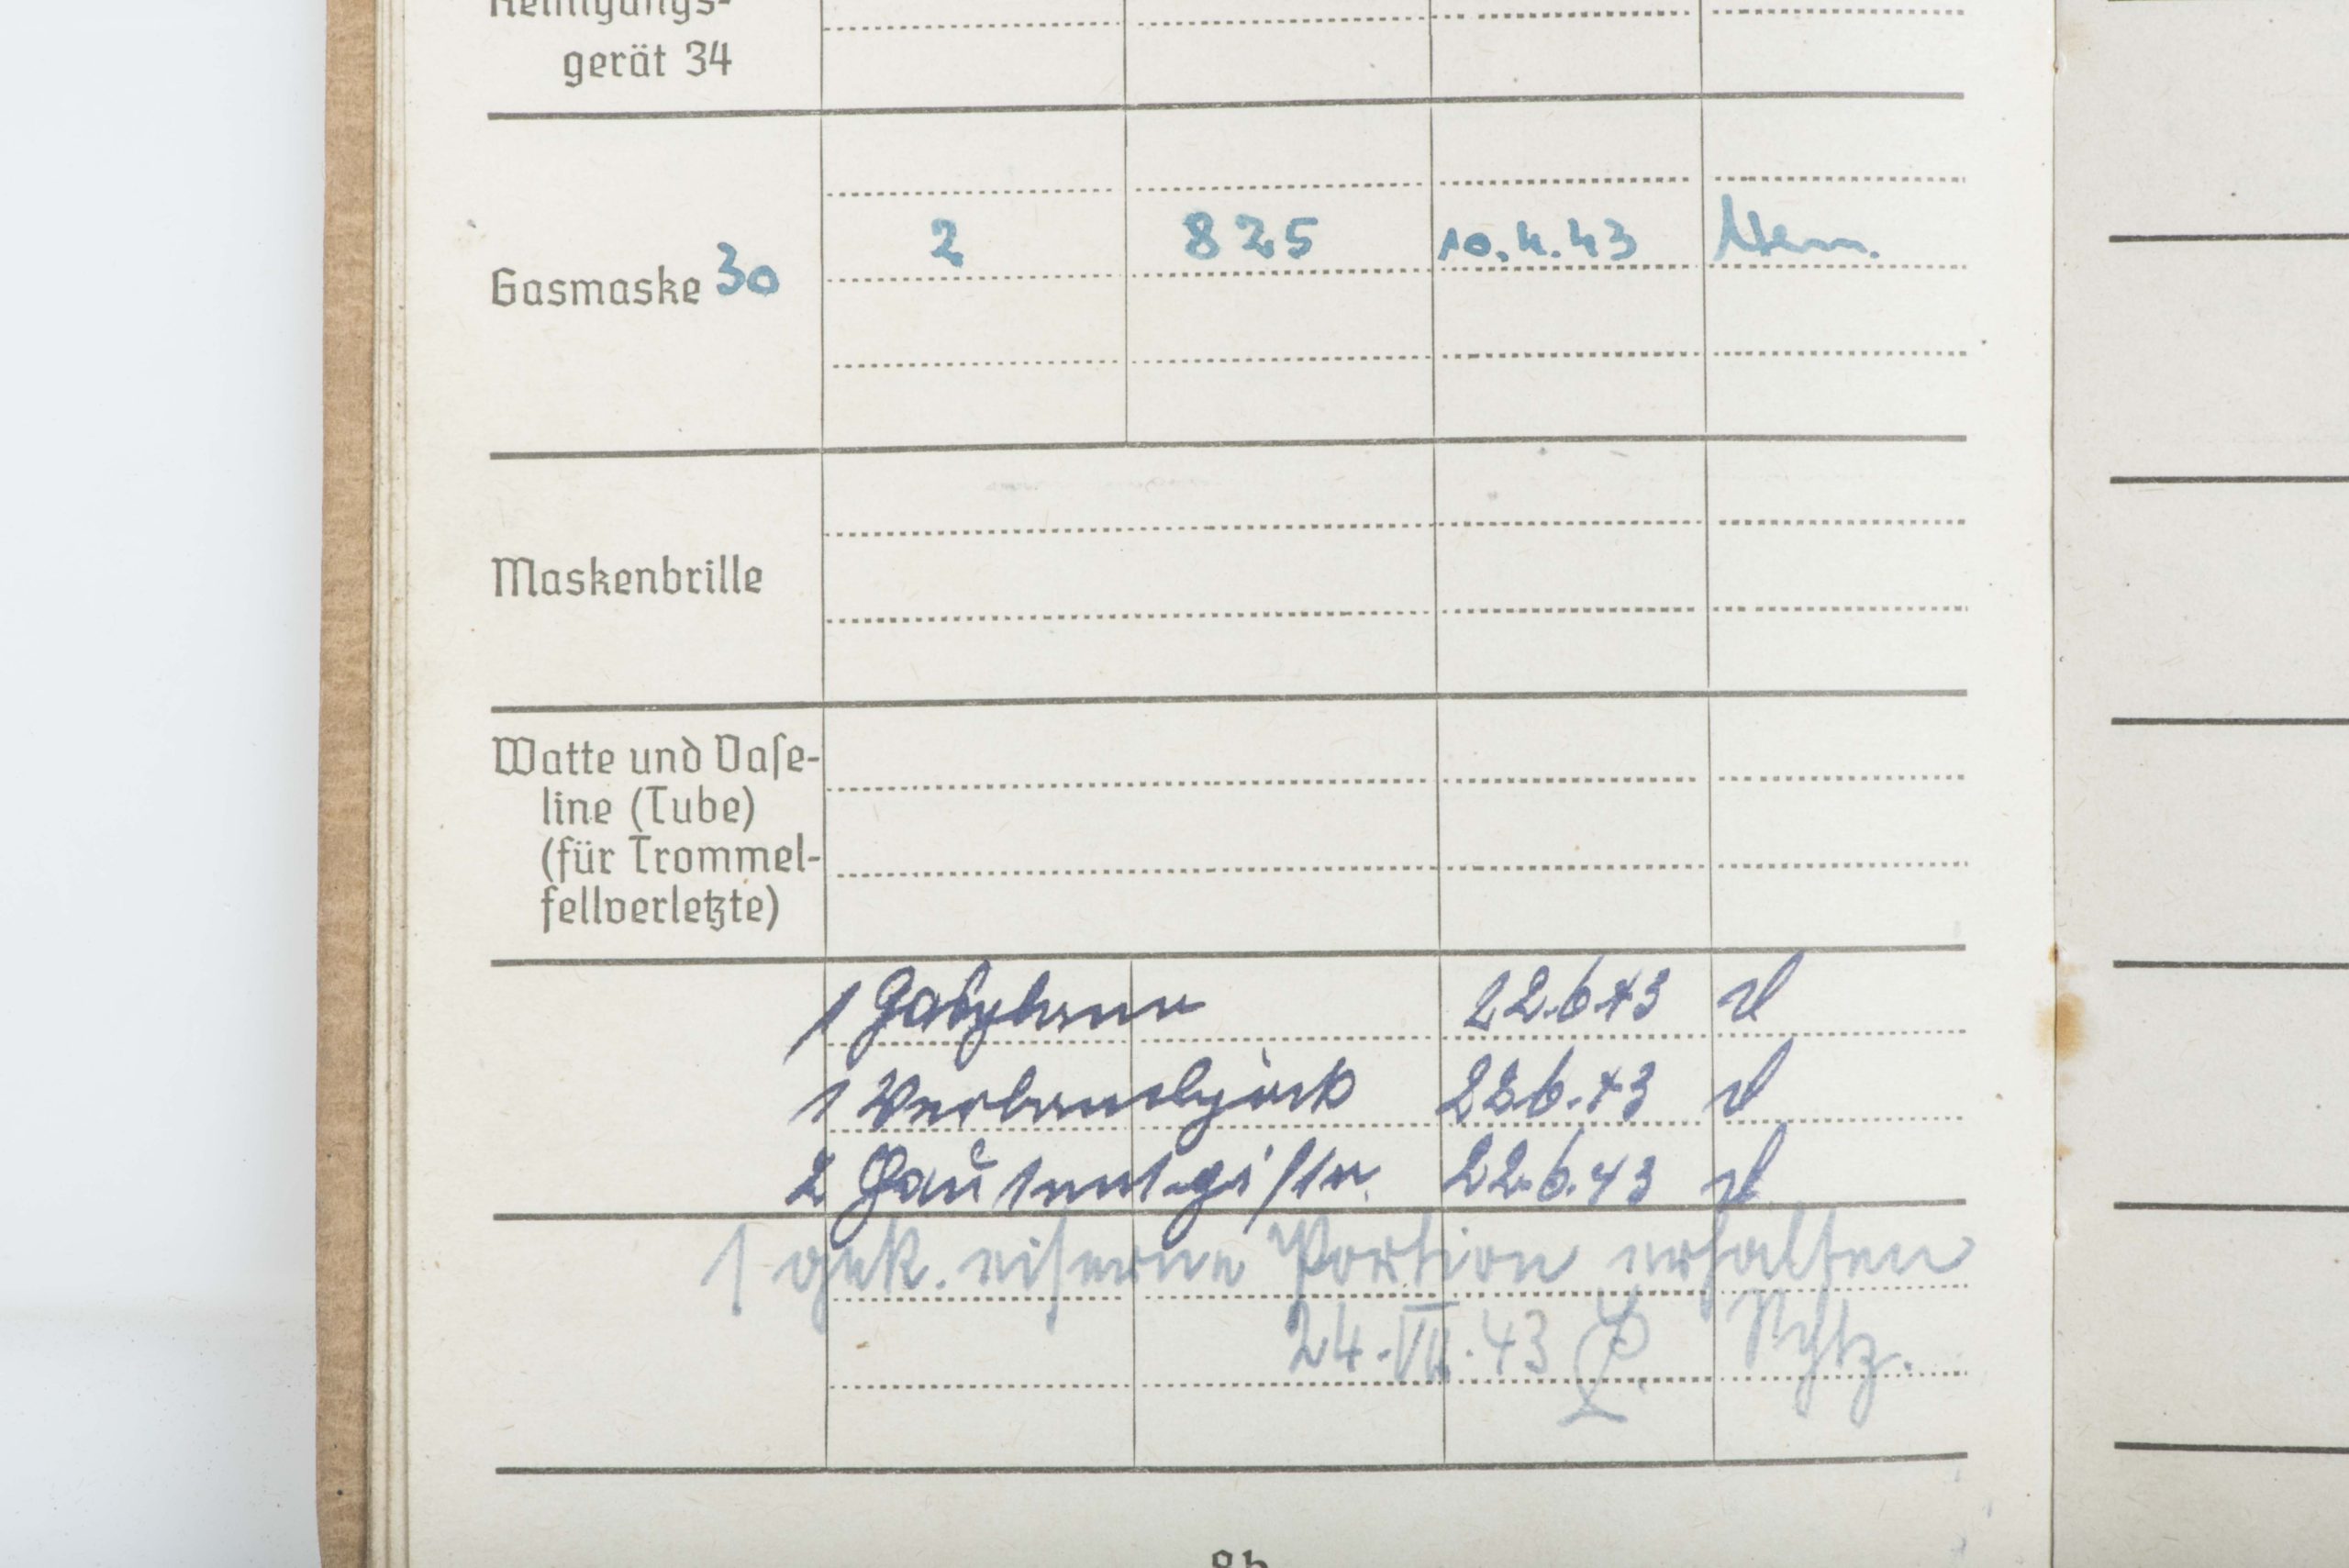 Reinigungs-
gerät 34
Gasmaske 30 2 825 10.4.43
Maskenbrille
Watte und Vase-
line (Tube)
(für Trommel-
fellverletzte)
1 Gasplane 22.6.43
1 Verbandpäck 22.6.43
2 Hautentgifter 22.6.43
1 gek. eiserne Portion erhalten
24.VII.43
8b